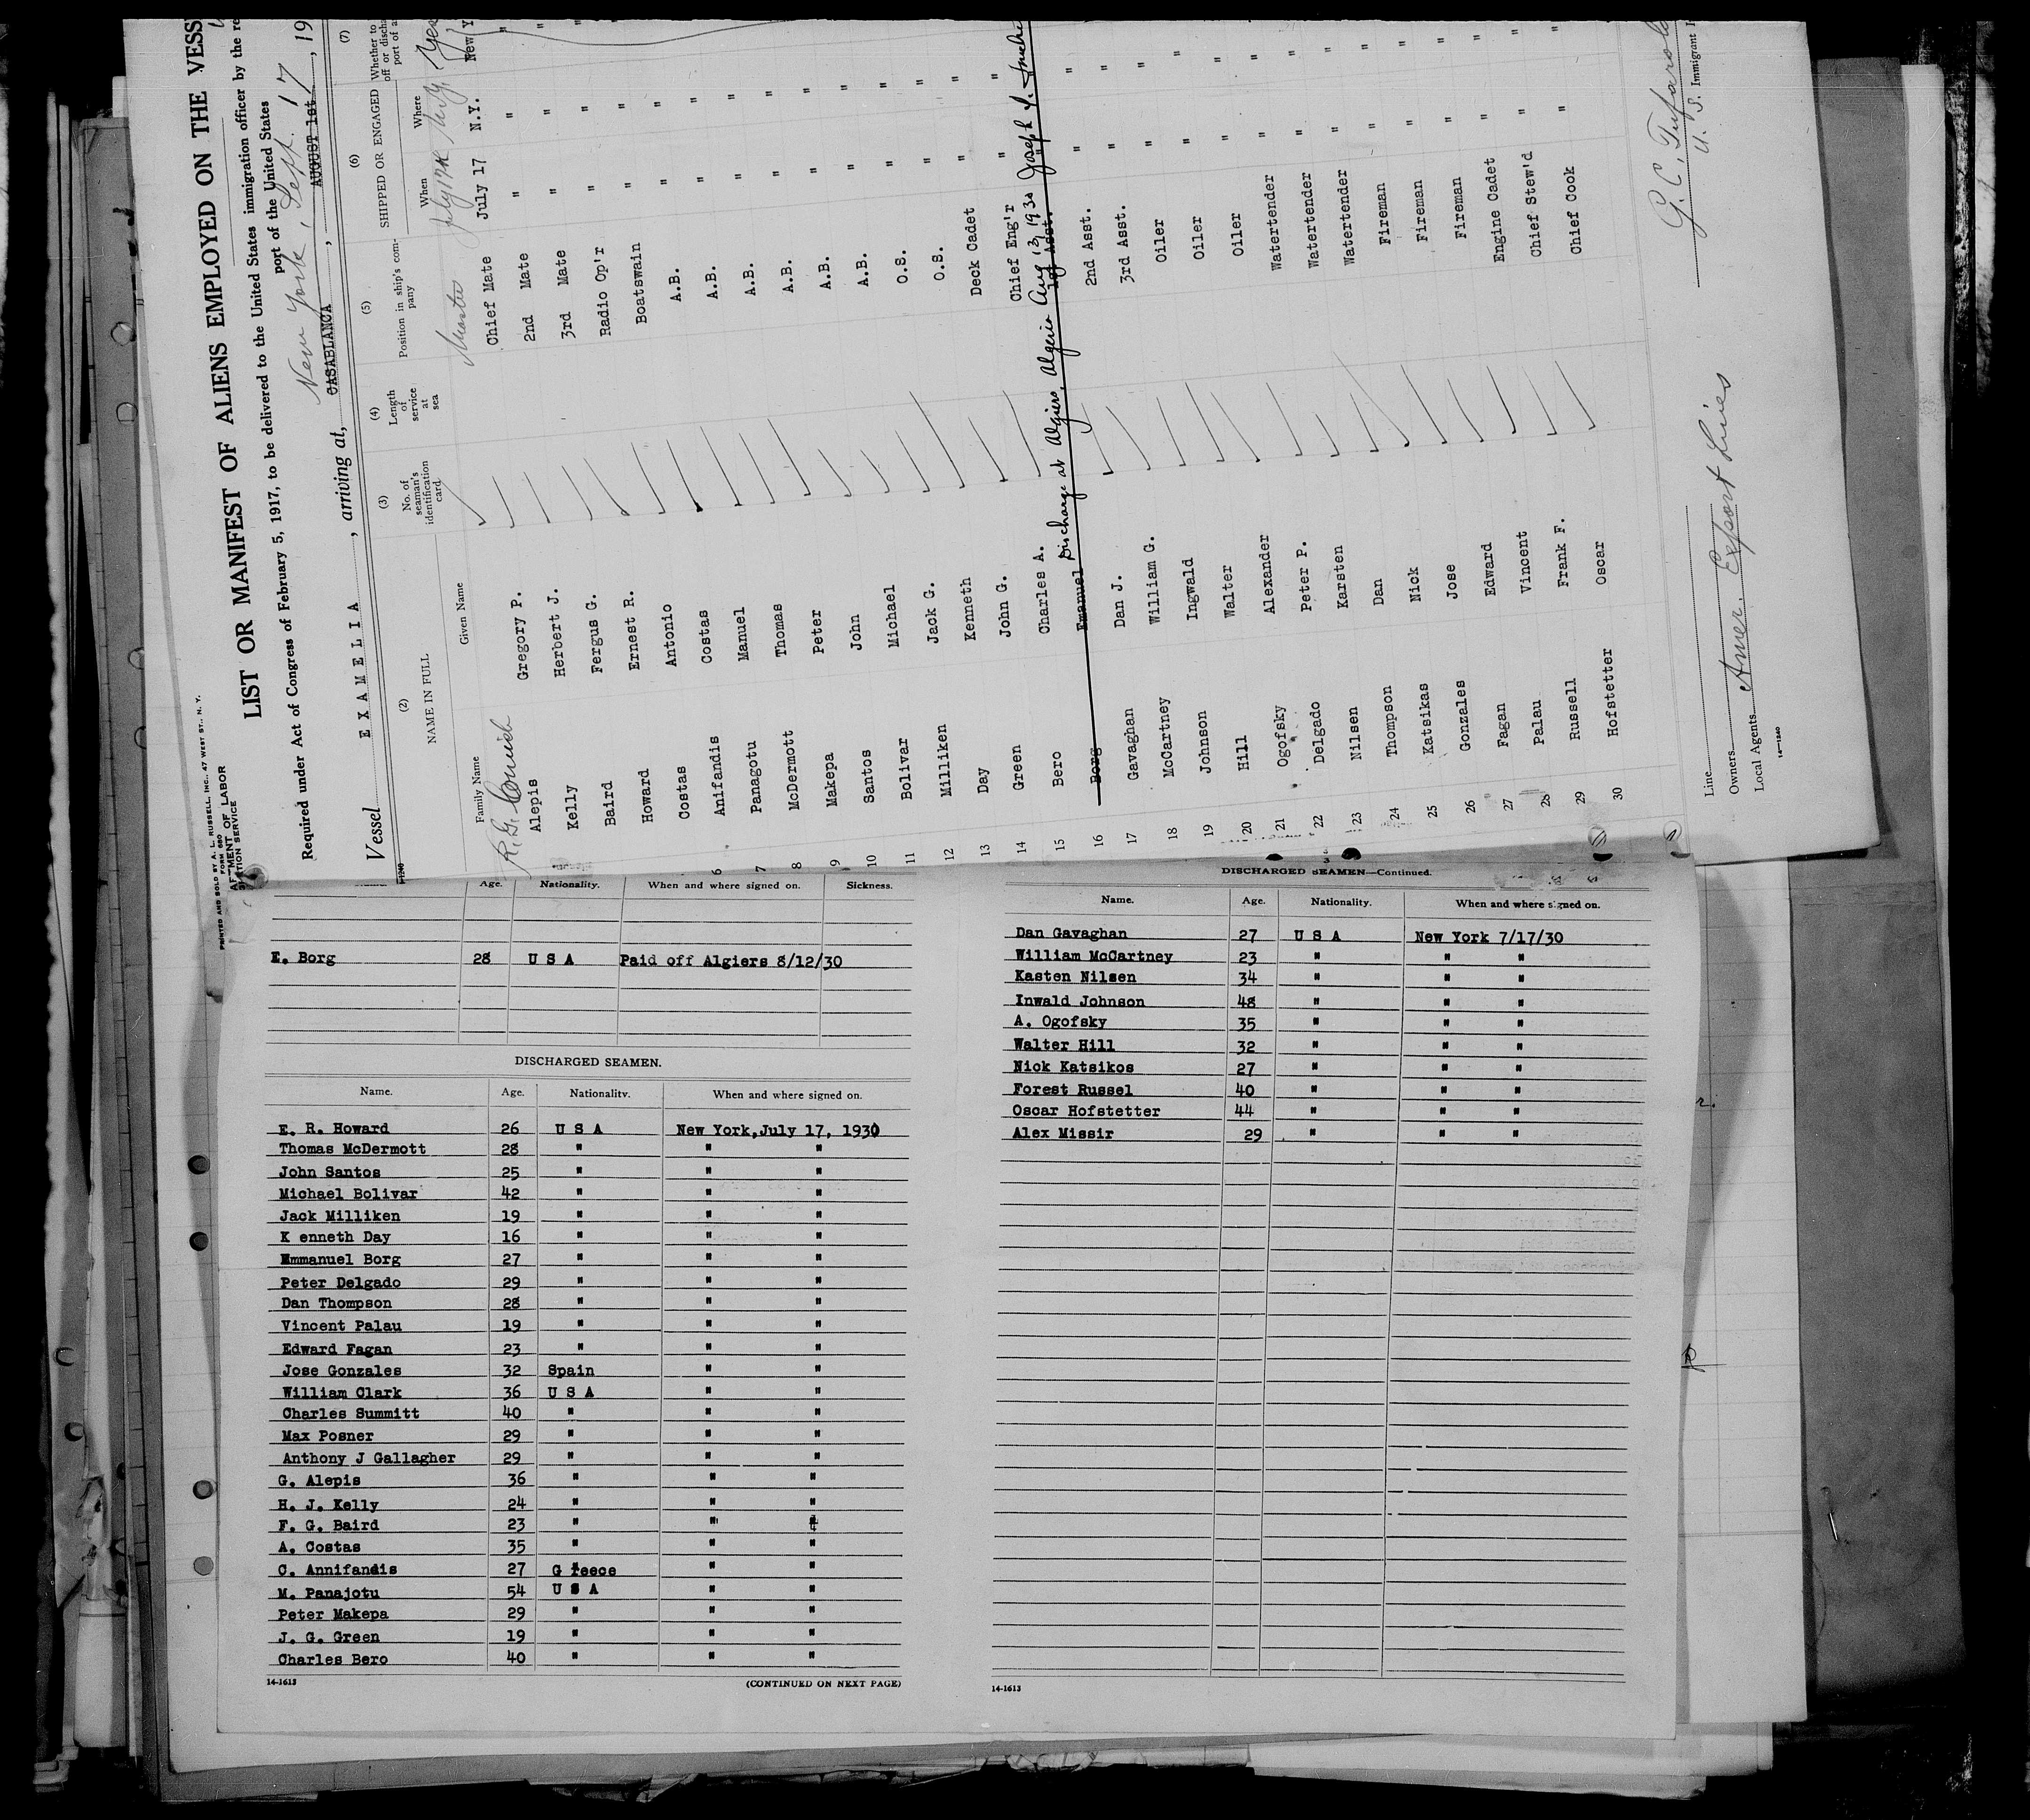 PRINTED AND SOLD BY A. L. RUSSELL, INC., 47 WEST ST., N. Y.
FORM 680
MENT OF LABOR
TION SERVICE
LIST OR MANIFEST OF ALIENS EMPLOYED ON THE VESS
Required under Act of Congress of February 5, 1917, to be delivered to the United States immigration officer by the re
port of the United States
Vessel EXAMELIA, arriving at, CASABLANCA, AUGUST 1st, 19
New York, Sept. 17
(2) (3) (4) (5) (6) (7)
NAME IN FULL
Family Name Given Name
No. of seaman's identification card
Length of service at sea
Position in ship's company
SHIPPED OR ENGAGED
When Where
Whether to
off or discha
port of a
R. G. Cornish Master July 17th N.Y. Yes
Alepis Gregory P. Chief Mate July 17 N.Y. New Y
Kelly Herbert J. 2nd Mate " " "
Baird Fergus G. 3rd Mate " "
Howard Ernest R. Radio Op'r " "
Costas Antonio Boatswain " "
6 Anifandis Costas A.B. " "
7 Panagotu Manuel A.B. " "
8 McDermott Thomas A.B. " "
9 Makepa Peter A.B. " "
10 Santos John A.B. " "
11 Bolivar Michael A.B. " "
12 Milliken Jack G. O.S. " "
13 Day Kenneth O.S. " "
14 Green John G. Deck Cadet " "
15 Bero Charles A. Chief Eng'r
16 Borg Emanuel 1st Asst. Discharge at Algiers, Algeria Aug 13, 1930 Joseph I.
17 Gavaghan Dan J. 2nd Asst. " " "
18 McCartney William G. 3rd Asst. " " "
19 Johnson Ingwald Oiler " " "
20 Hill Walter Oiler " " "
21 Ogofsky Alexander Oiler " " "
22 Delgado Peter P. Watertender " " "
23 Nilsen Karsten Watertender " " "
24 Thompson Dan Watertender " " "
25 Katsikas Nick Fireman " " "
26 Gonzales Jose Fireman " " "
27 Fagan Edward Fireman " " "
28 Palau Vincent Engine Cadet " " "
29 Russell Frank F. Chief Stew'd " "
30 Hofstetter Oscar Chief Cook " "
Line
Owners Amer. Export Lines
Local Agents
14—1240
G. C. Tufarolo
U. S. Immigrant I
Age. Nationality. When and where signed on. Sickness.
E. Borg 28 U S A Paid off Algiers 8/12/30
DISCHARGED SEAMEN.
Name. Age. Nationality. When and where signed on.
E. R. Howard 26 U S A New York,July 17, 1930
Thomas McDermott 28 " " "
John Santos 25 " " "
Michael Bolivar 42 " " "
Jack Milliken 19 " " "
K enneth Day 16 " " "
Emmanuel Borg 27 " " "
Peter Delgado 29 " " "
Dan Thompson 28 " " "
Vincent Palau 19 " " "
Edward Fagan 23 " " "
Jose Gonzales 32 Spain " "
William Clark 36 U S A " "
Charles Summitt 40 " " "
Max Posner 29 " " "
Anthony J Gallagher 29 " " "
G. Alepis 36 " " "
H. J. Kelly 24 " " "
F. G. Baird 23 " " "
A. Costas 35 " " "
C. Annifandis 27 G reece " "
M. Panajotu 54 U S A " "
Peter Makepa 29 " " "
J. G. Green 19 " " "
Charles Bero 40 " " "
14-1613 (CONTINUED ON NEXT PAGE)
DISCHARGED SEAMEN—Continued.
Name. Age. Nationality. When and where signed on.
Dan Gavaghan 27 U S A New York 7/17/30
William McCartney 23 " " "
Kasten Nilsen 34 " " "
Inwald Johnson 48 " " "
A. Ogofsky 35 " " "
Walter Hill 32 " " "
Nick Katsikos 27 " " "
Forest Russel 40 " " "
Oscar Hofstetter 44 " " "
Alex Missir 29 " " "
14-1613